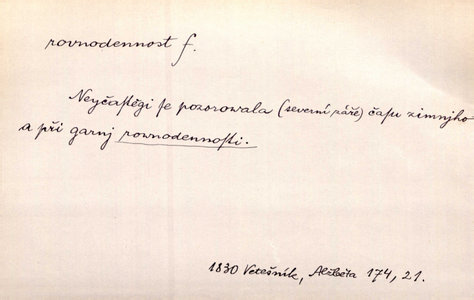 rovnodennost f.
Neyčaſtěgi ſe pozorowala (severní záře) čaſu zimnjho
a při garnj rownodennoſti.
1830 Vetešník, Alžběta 174, 21.